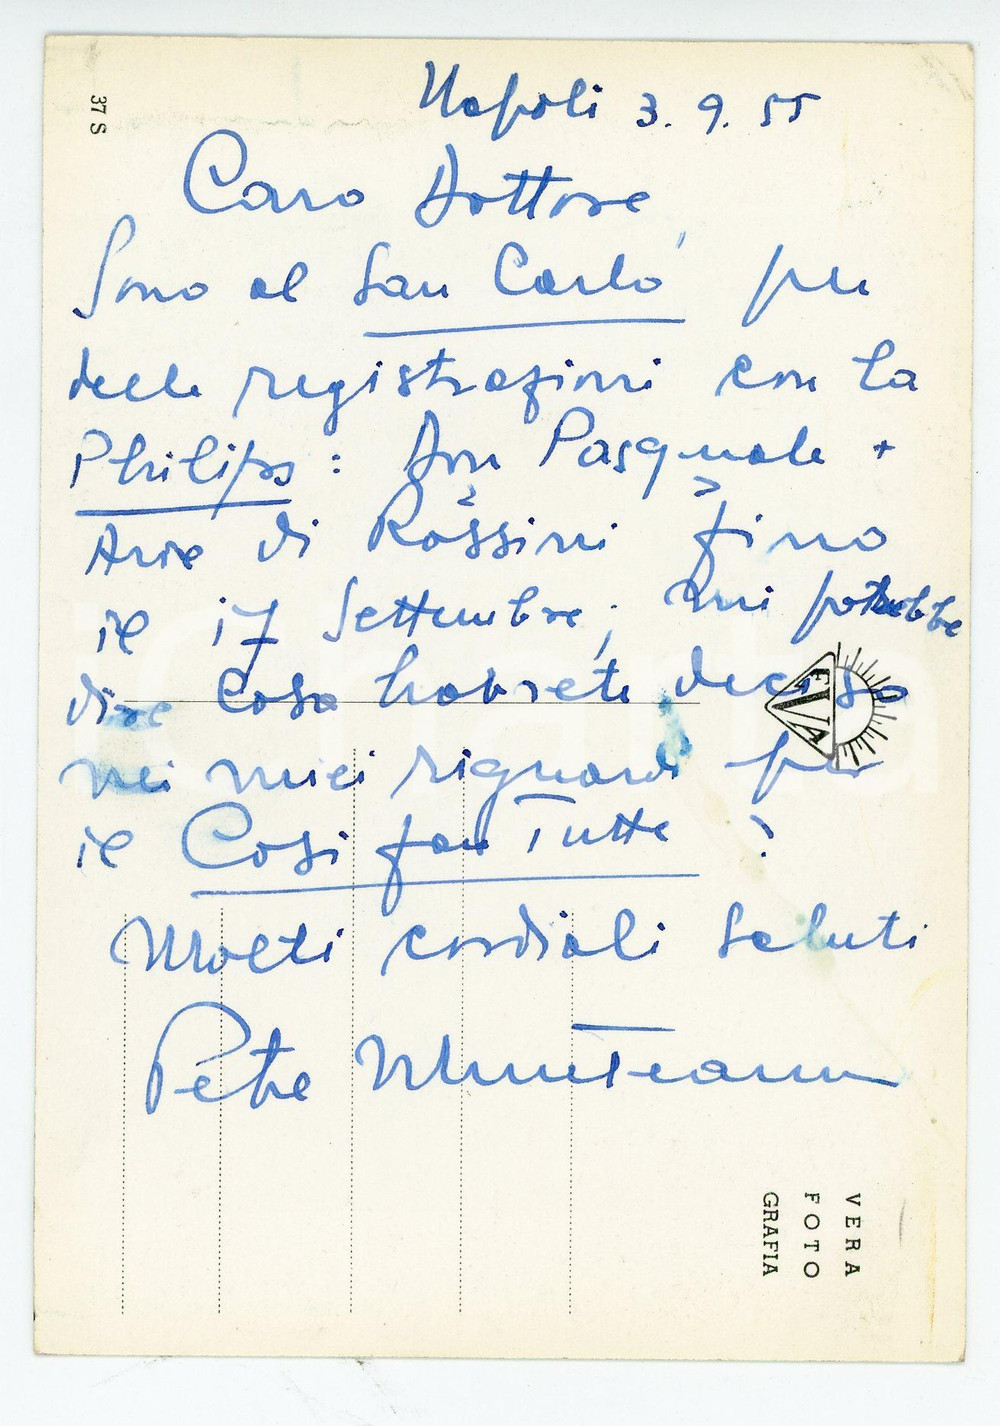 37 S
Napoli 3. 9. 55
Caro Dottore,
Sono al San Carlo per
delle registrazioni con la
Philips: Don Pasquale +
Arie di Rossini fino
il 17 Settembre; mi potrebbe
dire cosa havrete deciso
nei miei riguardi per
il Cosi fan Tutte?
Molti cordiali saluti
Petre Munteanu
VERA
FOTO
GRAFIA